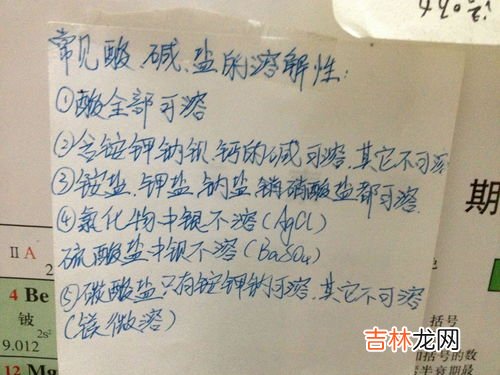 常见酸、碱、盐的溶解性:
①酸全部可溶
②含铵钾钠钡、钙的碱可溶、其它不可溶
③铵盐、钾盐、钠盐、硝酸盐都可溶.
④氯化物中银不溶(AgCl)
硫酸盐中钡不溶(BaSO4)
⑤碳酸盐只有铵钾钠可溶、其它不可溶
(镁微溶)
期
II A
2
4 Be
铍
2s²
9.012
12 Mg
括号
括号的数
半衰期最
吉林龙网